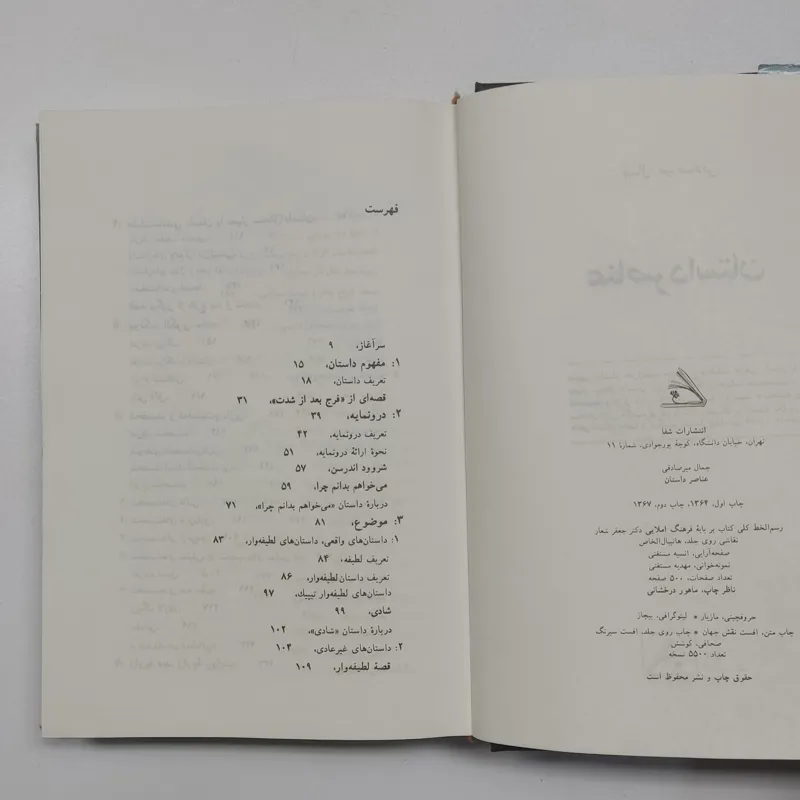 انتشارات شفا
تهران، خیابان دانشگاه، کوچهٔ پورجوادی، شمارهٔ ۱۱
جمال میرصادقی
عناصر داستان
چاپ اول، ۱۳۶۴، چاپ دوم، ۱۳۶۷
رسم‌الخط کلی کتاب بر پایهٔ فرهنگ املایی دکتر جعفر شعار
نقاشی روی جلد، هانیبال‌الخاص
صفحه‌آرایی، انسیه مستغنی
نمونه‌خوانی، مهدیه مستغنی
تعداد صفحات، ۵۰۰ صفحه
ناظر چاپ، ماهور درخشانی
حروفچینی، مازیار * لیتوگرافی، بیچاز
چاپ متن، افست نقش جهان * چاپ روی جلد، افست سیرنگ
صحافی، کوشش
تعداد ۵۵۰۰ نسخه
حقوق چاپ و نشر محفوظ است
فهرست
سرآغاز، ۹
۱: مفهوم داستان، ۱۵
تعریف داستان، ۱۸
قصه‌ای از «فرج بعد از شدت»، ۳۱
۲: درونمایه، ۳۹
تعریف درونمایه، ۴۲
نحوهٔ ارائهٔ درونمایه، ۵۱
شروود اندرسن، ۵۷
می‌خواهم بدانم چرا، ۵۹
دربارهٔ داستان «می‌خواهم بدانم چرا»، ۷۱
۳: موضوع، ۸۱
۱: داستان‌های واقعی، داستان‌های لطیفه‌وار، ۸۳
تعریف لطیفه، ۸۴
تعریف داستان لطیفه‌وار، ۸۶
داستان‌های لطیفه‌وار تیپیك، ۹۷
شادی، ۹۹
دربارهٔ داستان «شادی»، ۱۰۲
۲: داستان‌های غیرعادی، ۱۰۴
قصهٔ لطیفه‌وار، ۱۰۹